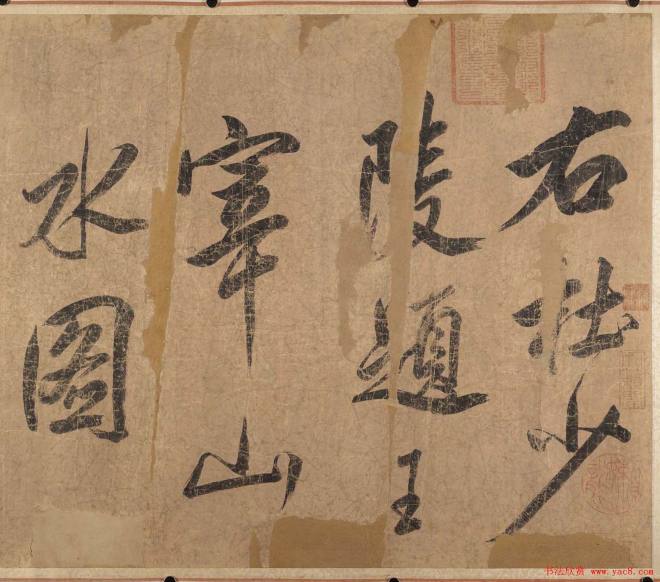 右杜少
陵題王
宰山
水圖
书法欣赏 www.yac8.com